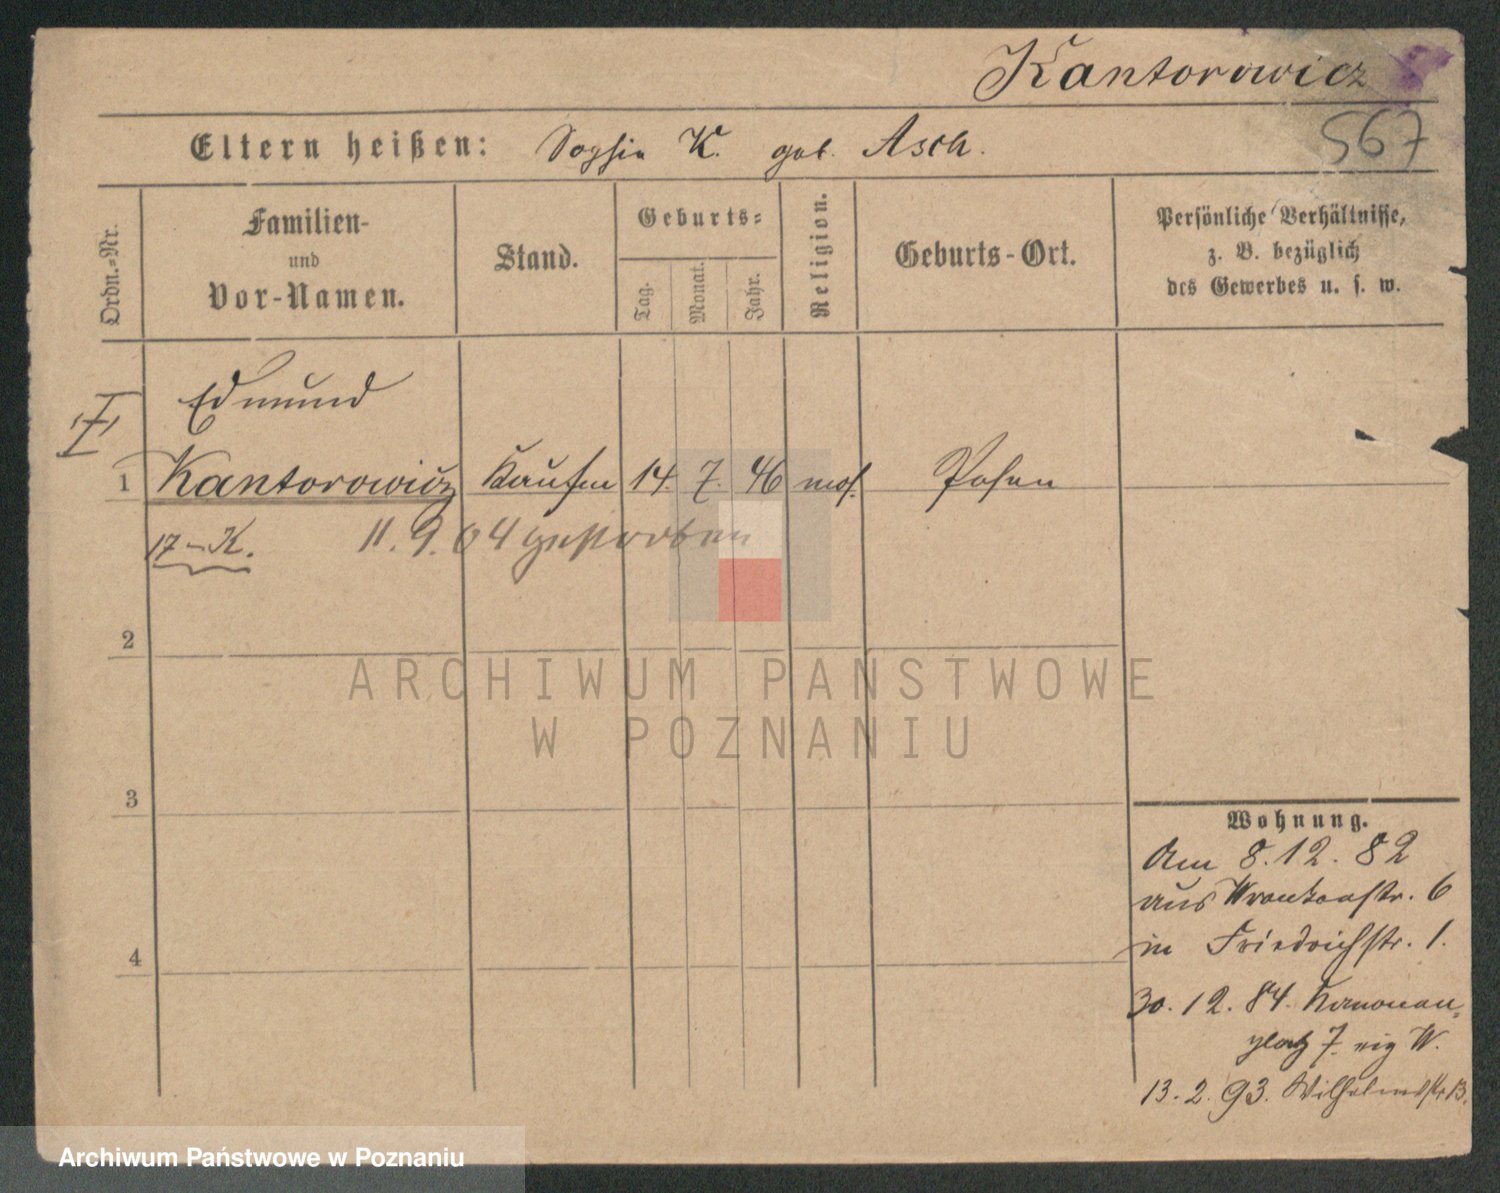 Kantorowicz
567
Eltern heißen: Sophie K. geb. Asch.
Ordn.-Nr.
Familien-
und
Vor-Namen.
Stand.
Geburts-
Tag.
Monat.
Jahr.
Religion.
Geburts-Ort.
Persönliche Verhältnisse,
z. B. bezüglich
des Gewerbes u. s. w.
I
Edmund
1 Kantorowicz Kaufm 14. 7. 46 mos. Posen
17-K. 11.9.04 gestorben
2
3
4
Wohnung.
Am 8.12.82
aus Wronkerstr. 6
in Friedrichstr. 1.
30.12.84. Kanonen-
platz 7. eig W.
13.2.93. Wilhelmstr
ARCHIWUM PAŃSTWOWE
W POZNANIU
Archiwum Państwowe w Poznaniu